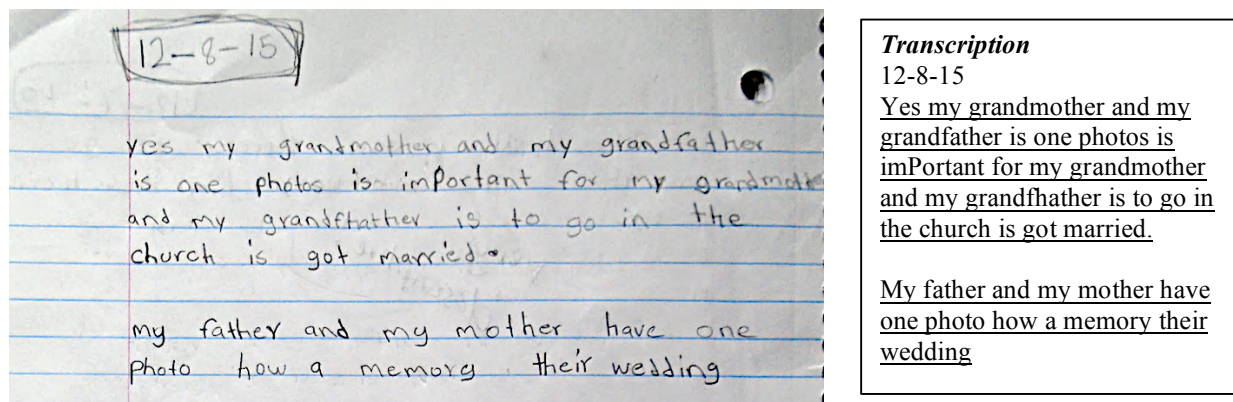 12-8-15
yes my grandmother and my grandfather
is one photos is imPortant for my grandmother
and my grandfhather is to go in the
church is got married.
my father and my mother have one
photo how a memory their wedding
Transcription
12-8-15
Yes my grandmother and my
grandfather is one photos is
imPortant for my grandmother
and my grandfhather is to go in
the church is got married.
My father and my mother have
one photo how a memory their
wedding